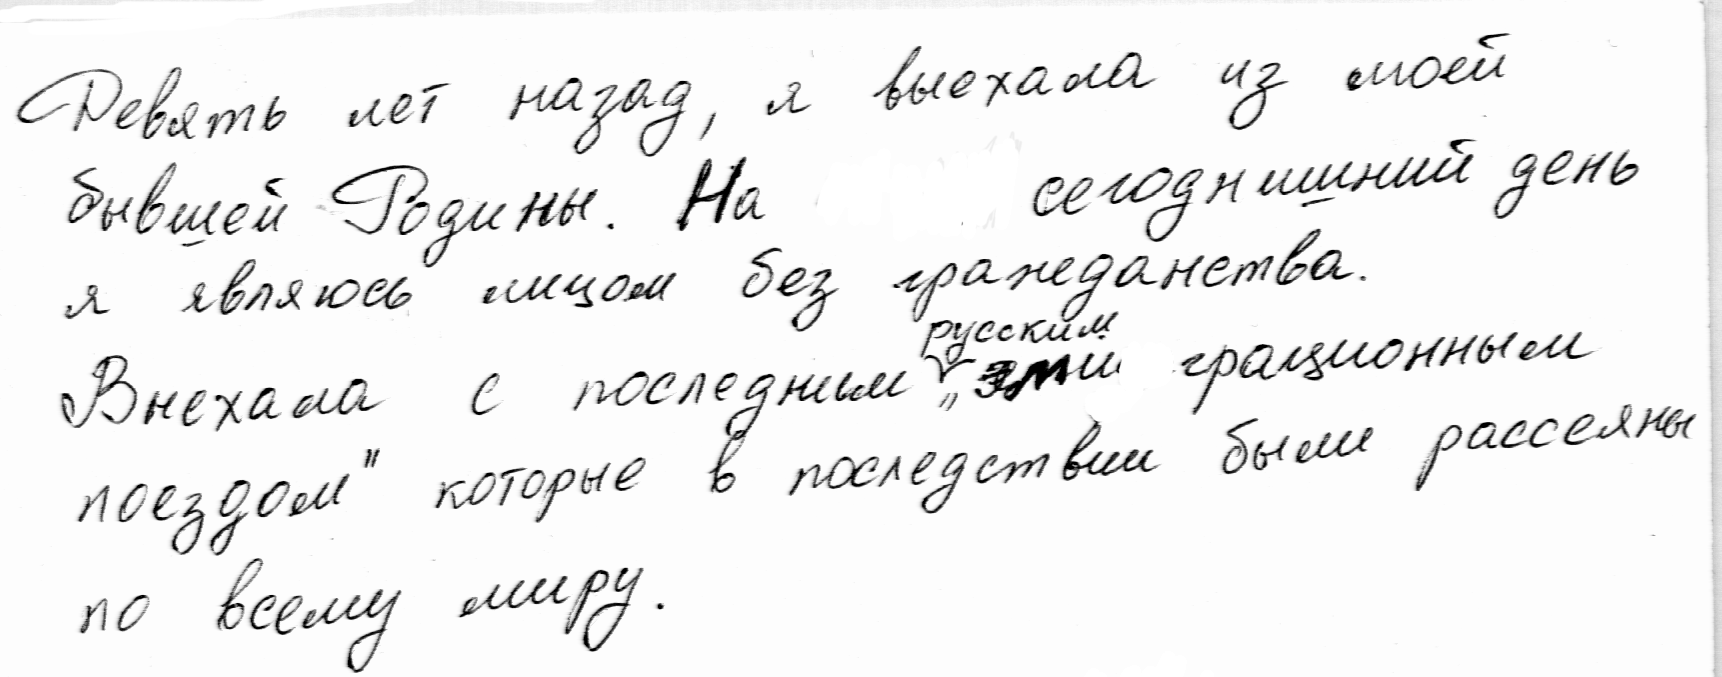 Девять лет назад, я выехала из моей
бывшей Родины. На сегоднишний день
я являюсь лицом без гражданства.
русским
Выехала с последним „эми грационным
поездом" которые в последствии были рассеяны
по всему миру.